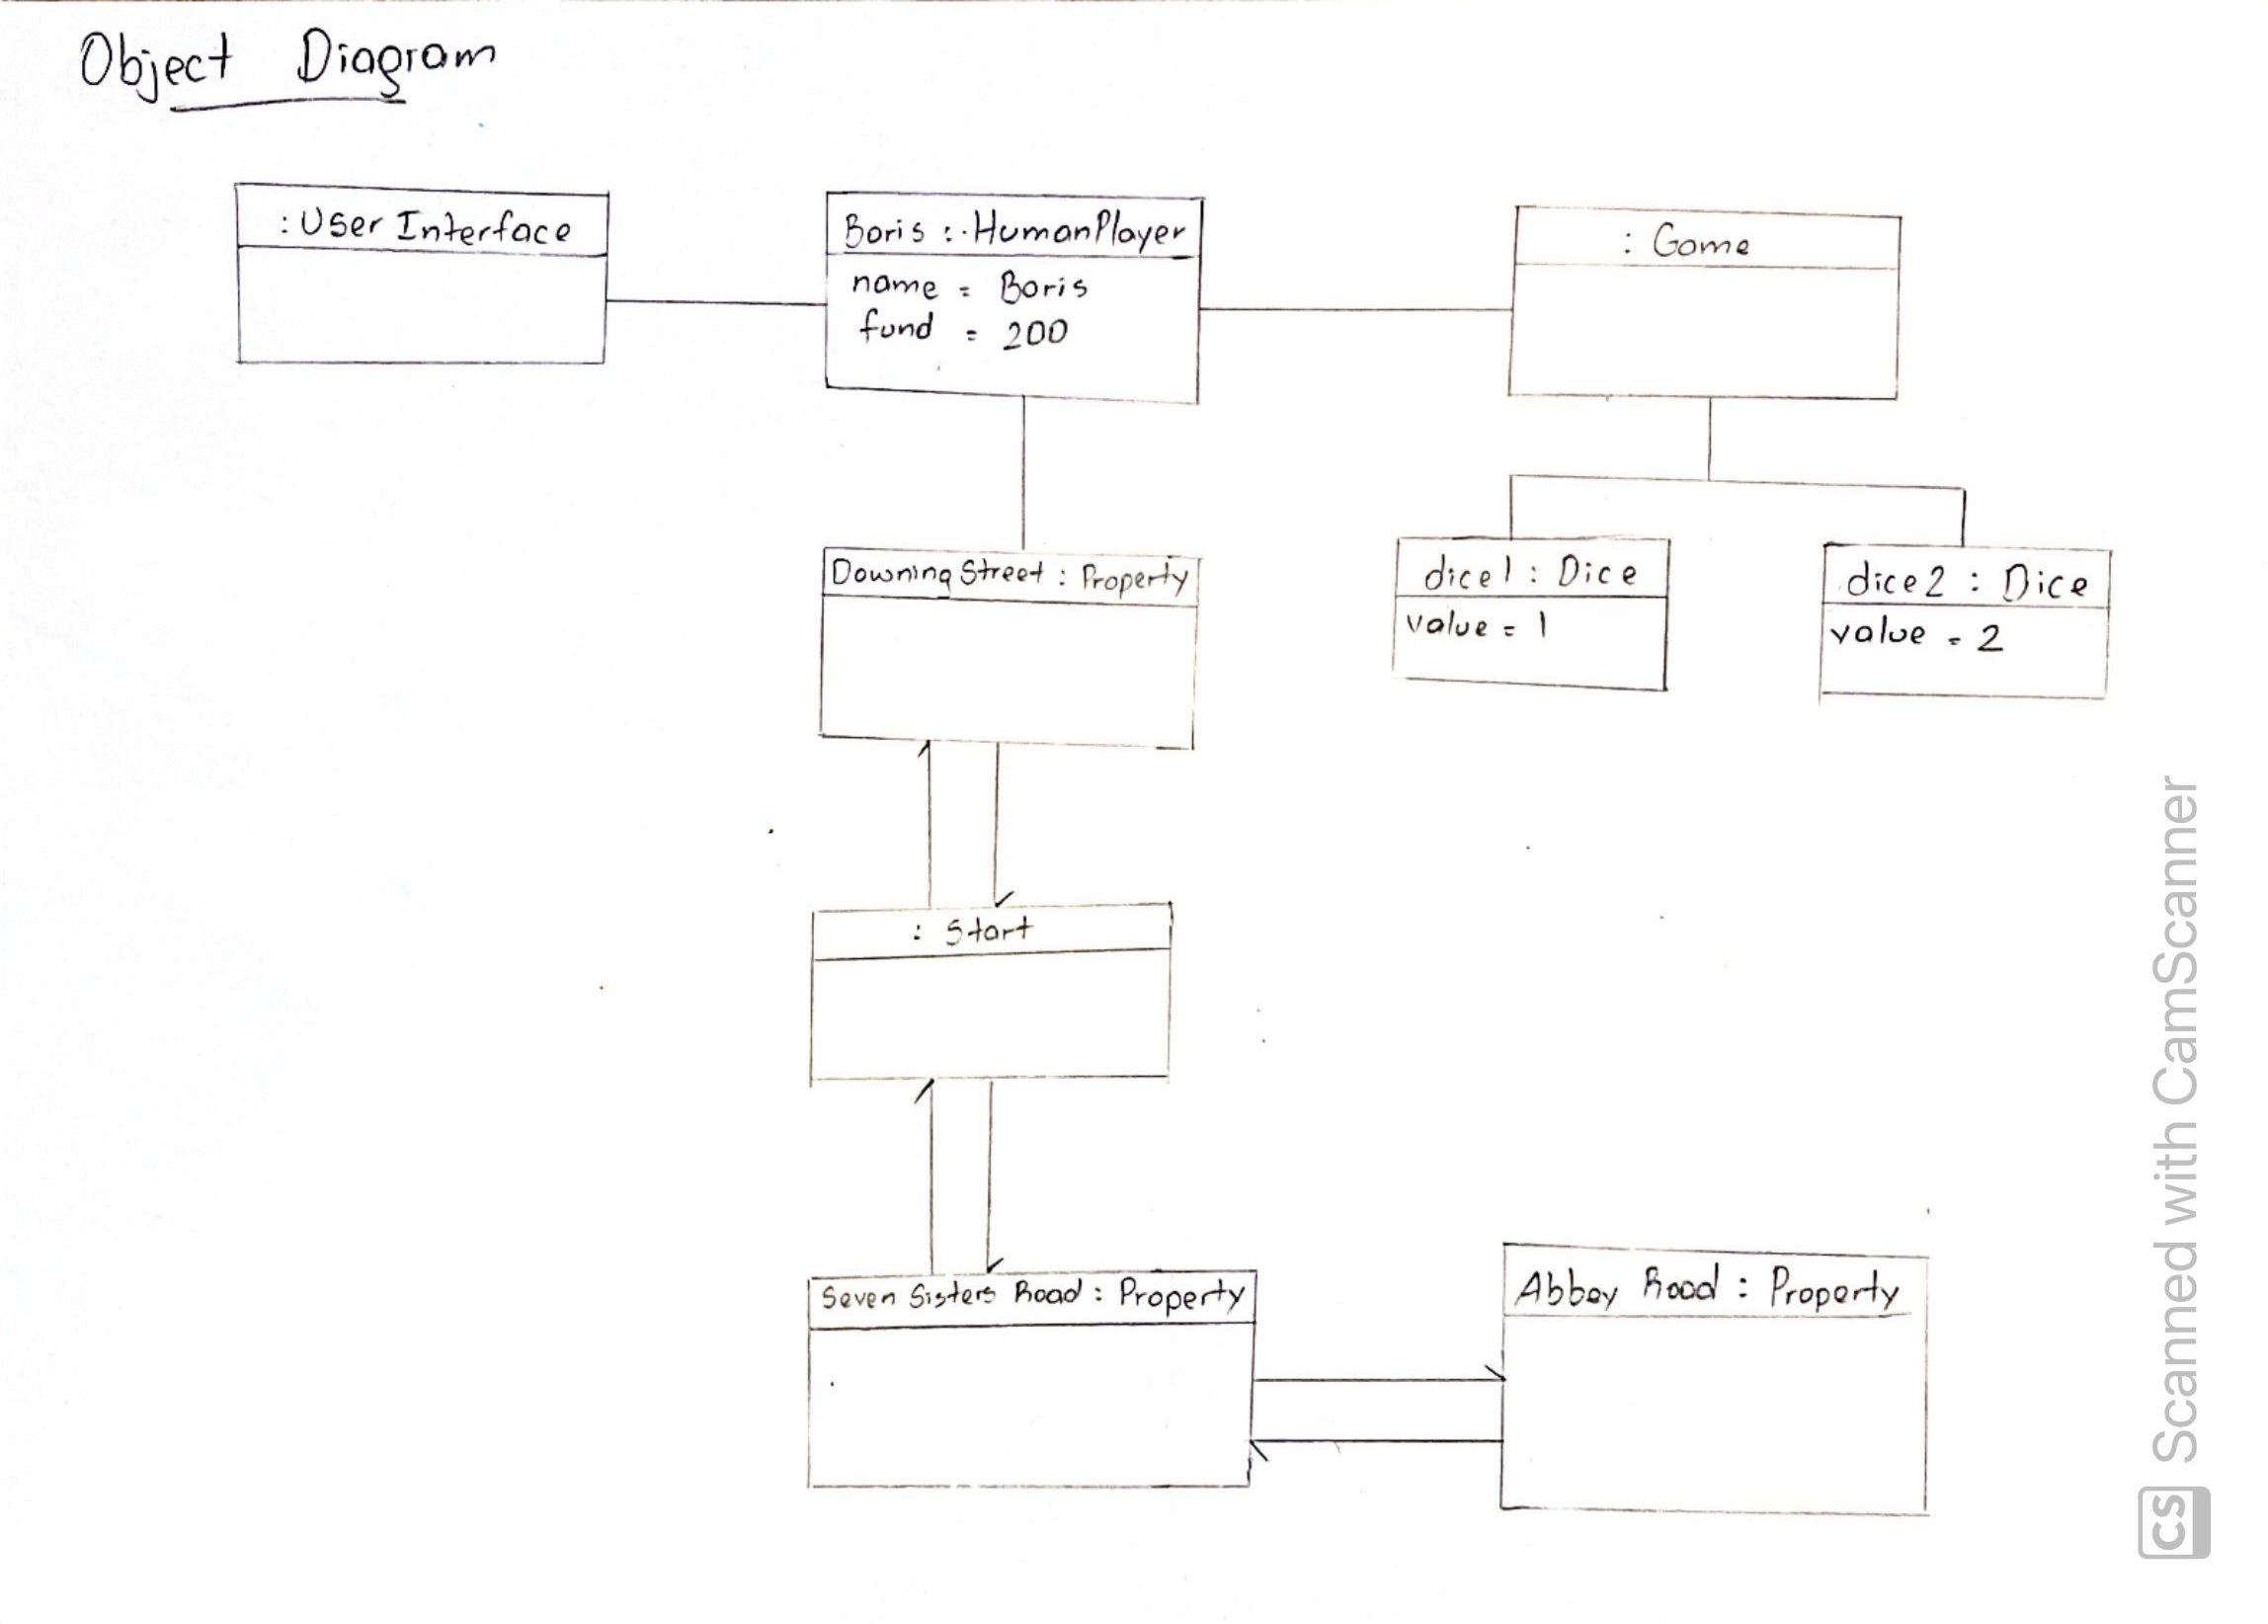 Object Diagram
: User Interface
Boris : HumanPlayer
name = Boris
fund = 200
: Game
Downing Street : Property
dice1 : Dice
value = 1
dice2 : Dice
value = 2
: Start
Seven Sisters Road : Property
Abbey Road : Property
CS Scanned with CamScanner